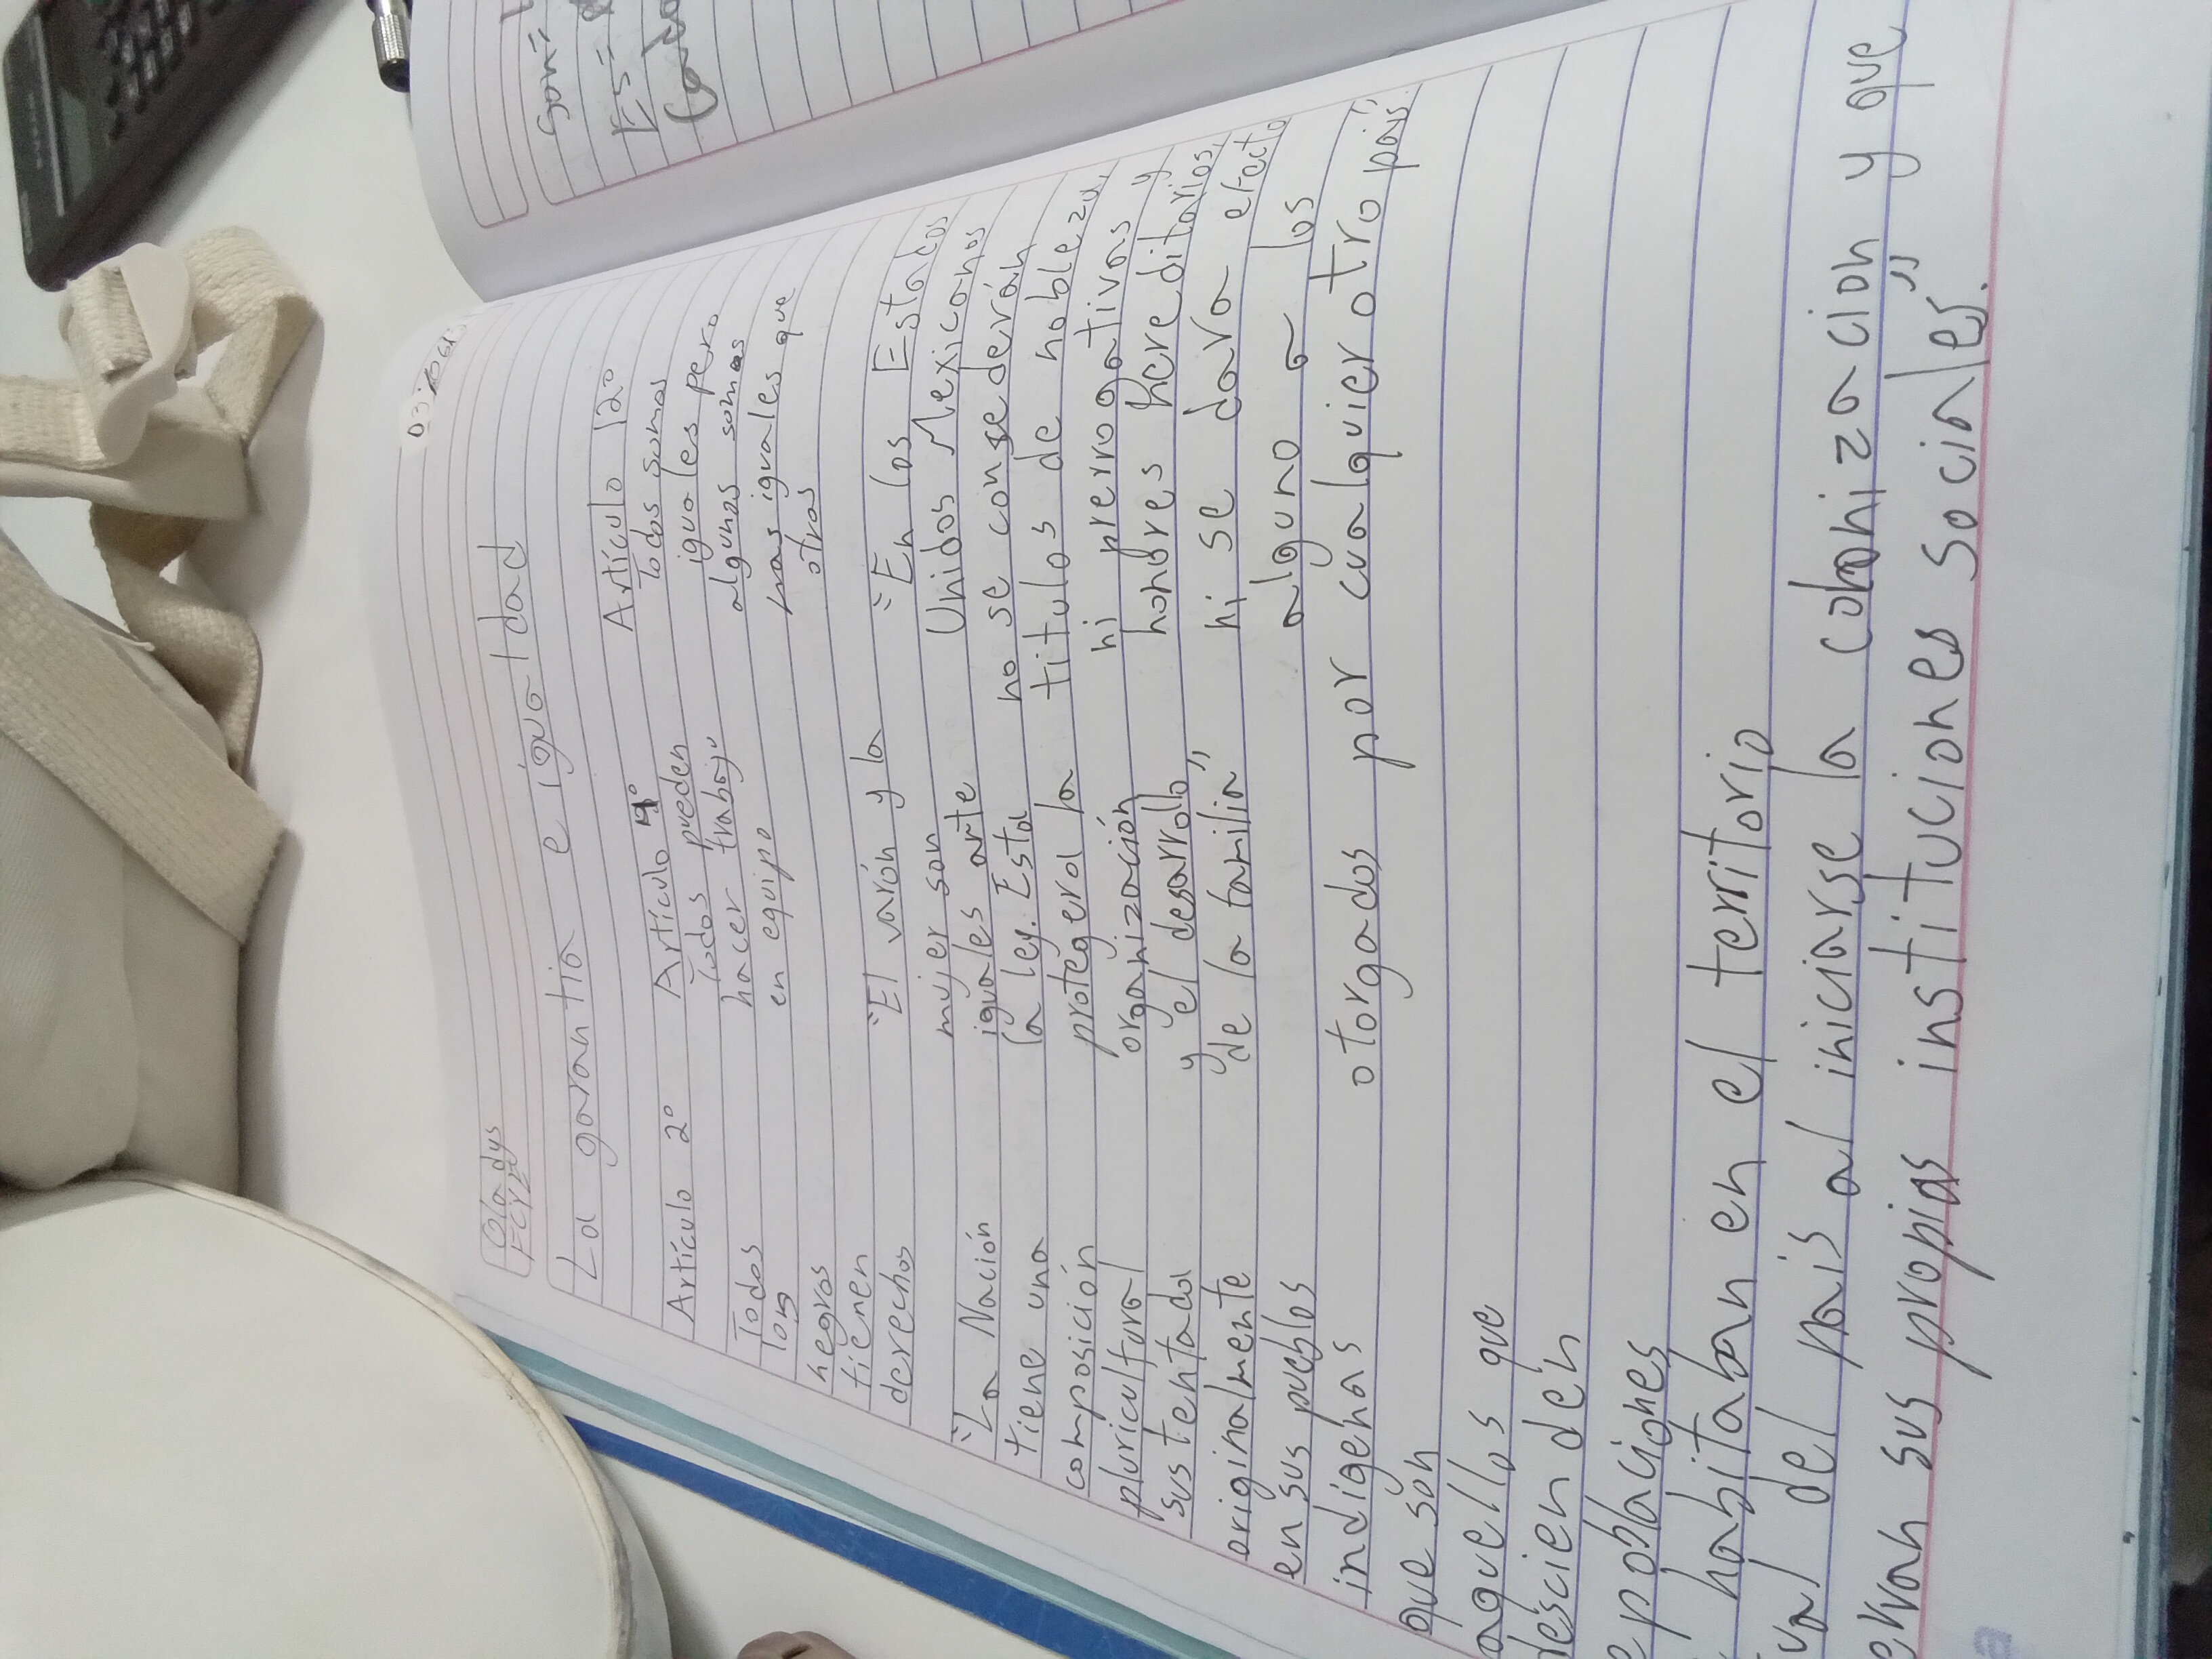 Gladys
FCYE
La garantia e igualdad
Artículo 2°
Todos
los
negros
tienen
derechos
"La Nación
tiene una
composición
pluricultural
sustentada
originalmente
en sus pueblos
indigenas
que son
aquellos que
descienden
poblaciones
habitaban en el territorio
del pais al iniciarse la colonización y que
sus propias instituciones sociales."
Artículo 4°
Todos pueden
hacer trabajo
en equipo
"El varón y la
mujer son
iguales ante
la ley. Esta
protegerá la
organización
y el desarrollo"
de la familia"
Artículo 12°
Todos somos
iguales pero
algunos somos
mas iguales que
otros
"En los Estados
Unidos Mexicanos
no se consederán
titulos de nobleza,
ni prerrogativas y
honores hereditarios,
ni se dara efecto
alguno a los
otorgados por cualquier otro país"
Son=
Es=